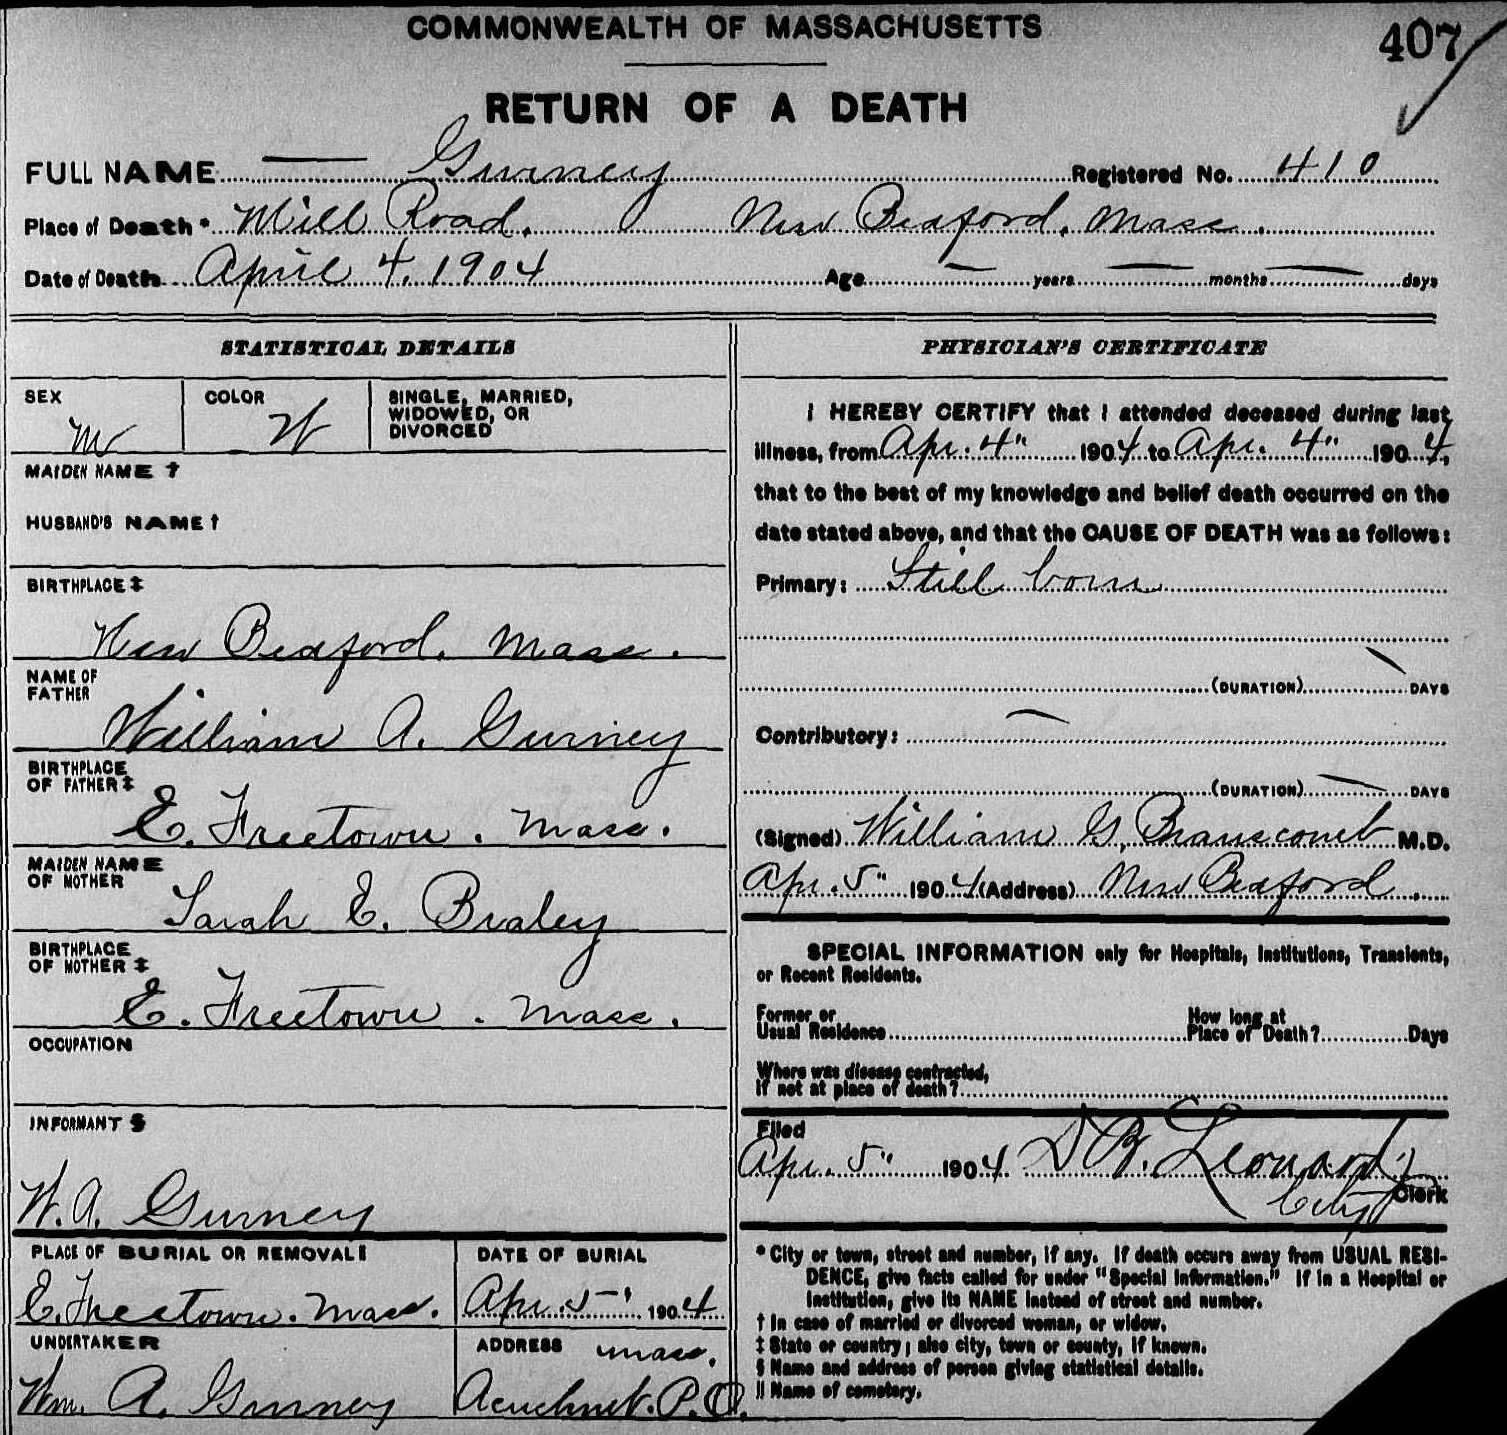 COMMONWEALTH OF MASSACHUSETTS
407
RETURN OF A DEATH
FULL NAME — Gurney Registered No. 410
Place of Death* Mill Road. New Bedford. Mass.
Date of Death April 4. 1904 Age — years — months — days
STATISTICAL DETAILS
SEX
M
COLOR
W
SINGLE, MARRIED,
WIDOWED, OR
DIVORCED
MAIDEN NAME †
HUSBAND'S NAME †
BIRTHPLACE ‡
New Bedford. Mass.
NAME OF
FATHER
William A. Gurney
BIRTHPLACE
OF FATHER ‡
E. Freetown. Mass.
MAIDEN NAME
OF MOTHER
Sarah E. Braley
BIRTHPLACE
OF MOTHER ‡
E. Freetown. Mass.
OCCUPATION
INFORMANT §
W. A. Gurney
PLACE OF BURIAL OR REMOVAL ||
E. Freetown. Mass.
DATE OF BURIAL
Apr. 5" 1904
UNDERTAKER
Wm. A. Gurney
ADDRESS Mass.
Acushnet. P.O.
PHYSICIAN'S CERTIFICATE
I HEREBY CERTIFY that I attended deceased during last
illness, from Apr. 4" 1904 to Apr. 4" 1904,
that to the best of my knowledge and belief death occurred on the
date stated above, and that the CAUSE OF DEATH was as follows:
Primary: Still born
(DURATION) — DAYS
Contributory: —
(DURATION) — DAYS
(Signed) William G. Branscomb M.D.
Apr. 5" 1904 (Address) New Bedford.
SPECIAL INFORMATION only for Hospitals, Institutions, Transients,
or Recent Residents.
Former or
Usual Residence
How long at
Place of Death? Days
Where was disease contracted,
If not at place of death?
Filed
Apr. 5" 1904 D B. Leonard
City Clerk
* City or town, street and number, if any. If death occurs away from USUAL RESI-
DENCE, give facts called for under "Special Information." If in a Hospital or
Institution, give its NAME instead of street and number.
† In case of married or divorced woman, or widow.
‡ State or country; also city, town or county, if known.
§ Name and address of person giving statistical details.
|| Name of cemetery.